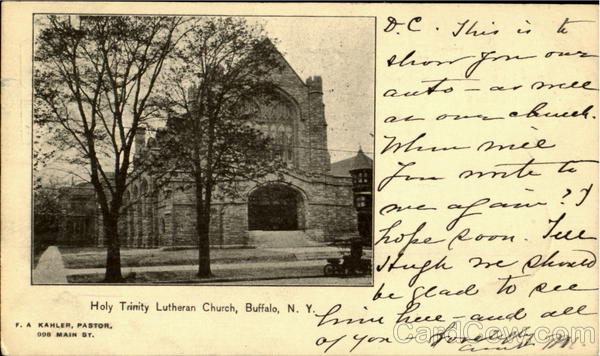 D.C. This is to
show you our
auto - as well
as our church.
When will
you write to
me again? I
hope soon. Tell
Hugh we should
be glad to see
him here - and all
of you - Lovingly
Aunt M.
Holy Trinity Lutheran Church, Buffalo, N. Y.
F. A KAHLER, PASTOR,
998 MAIN ST.
CardCow.com